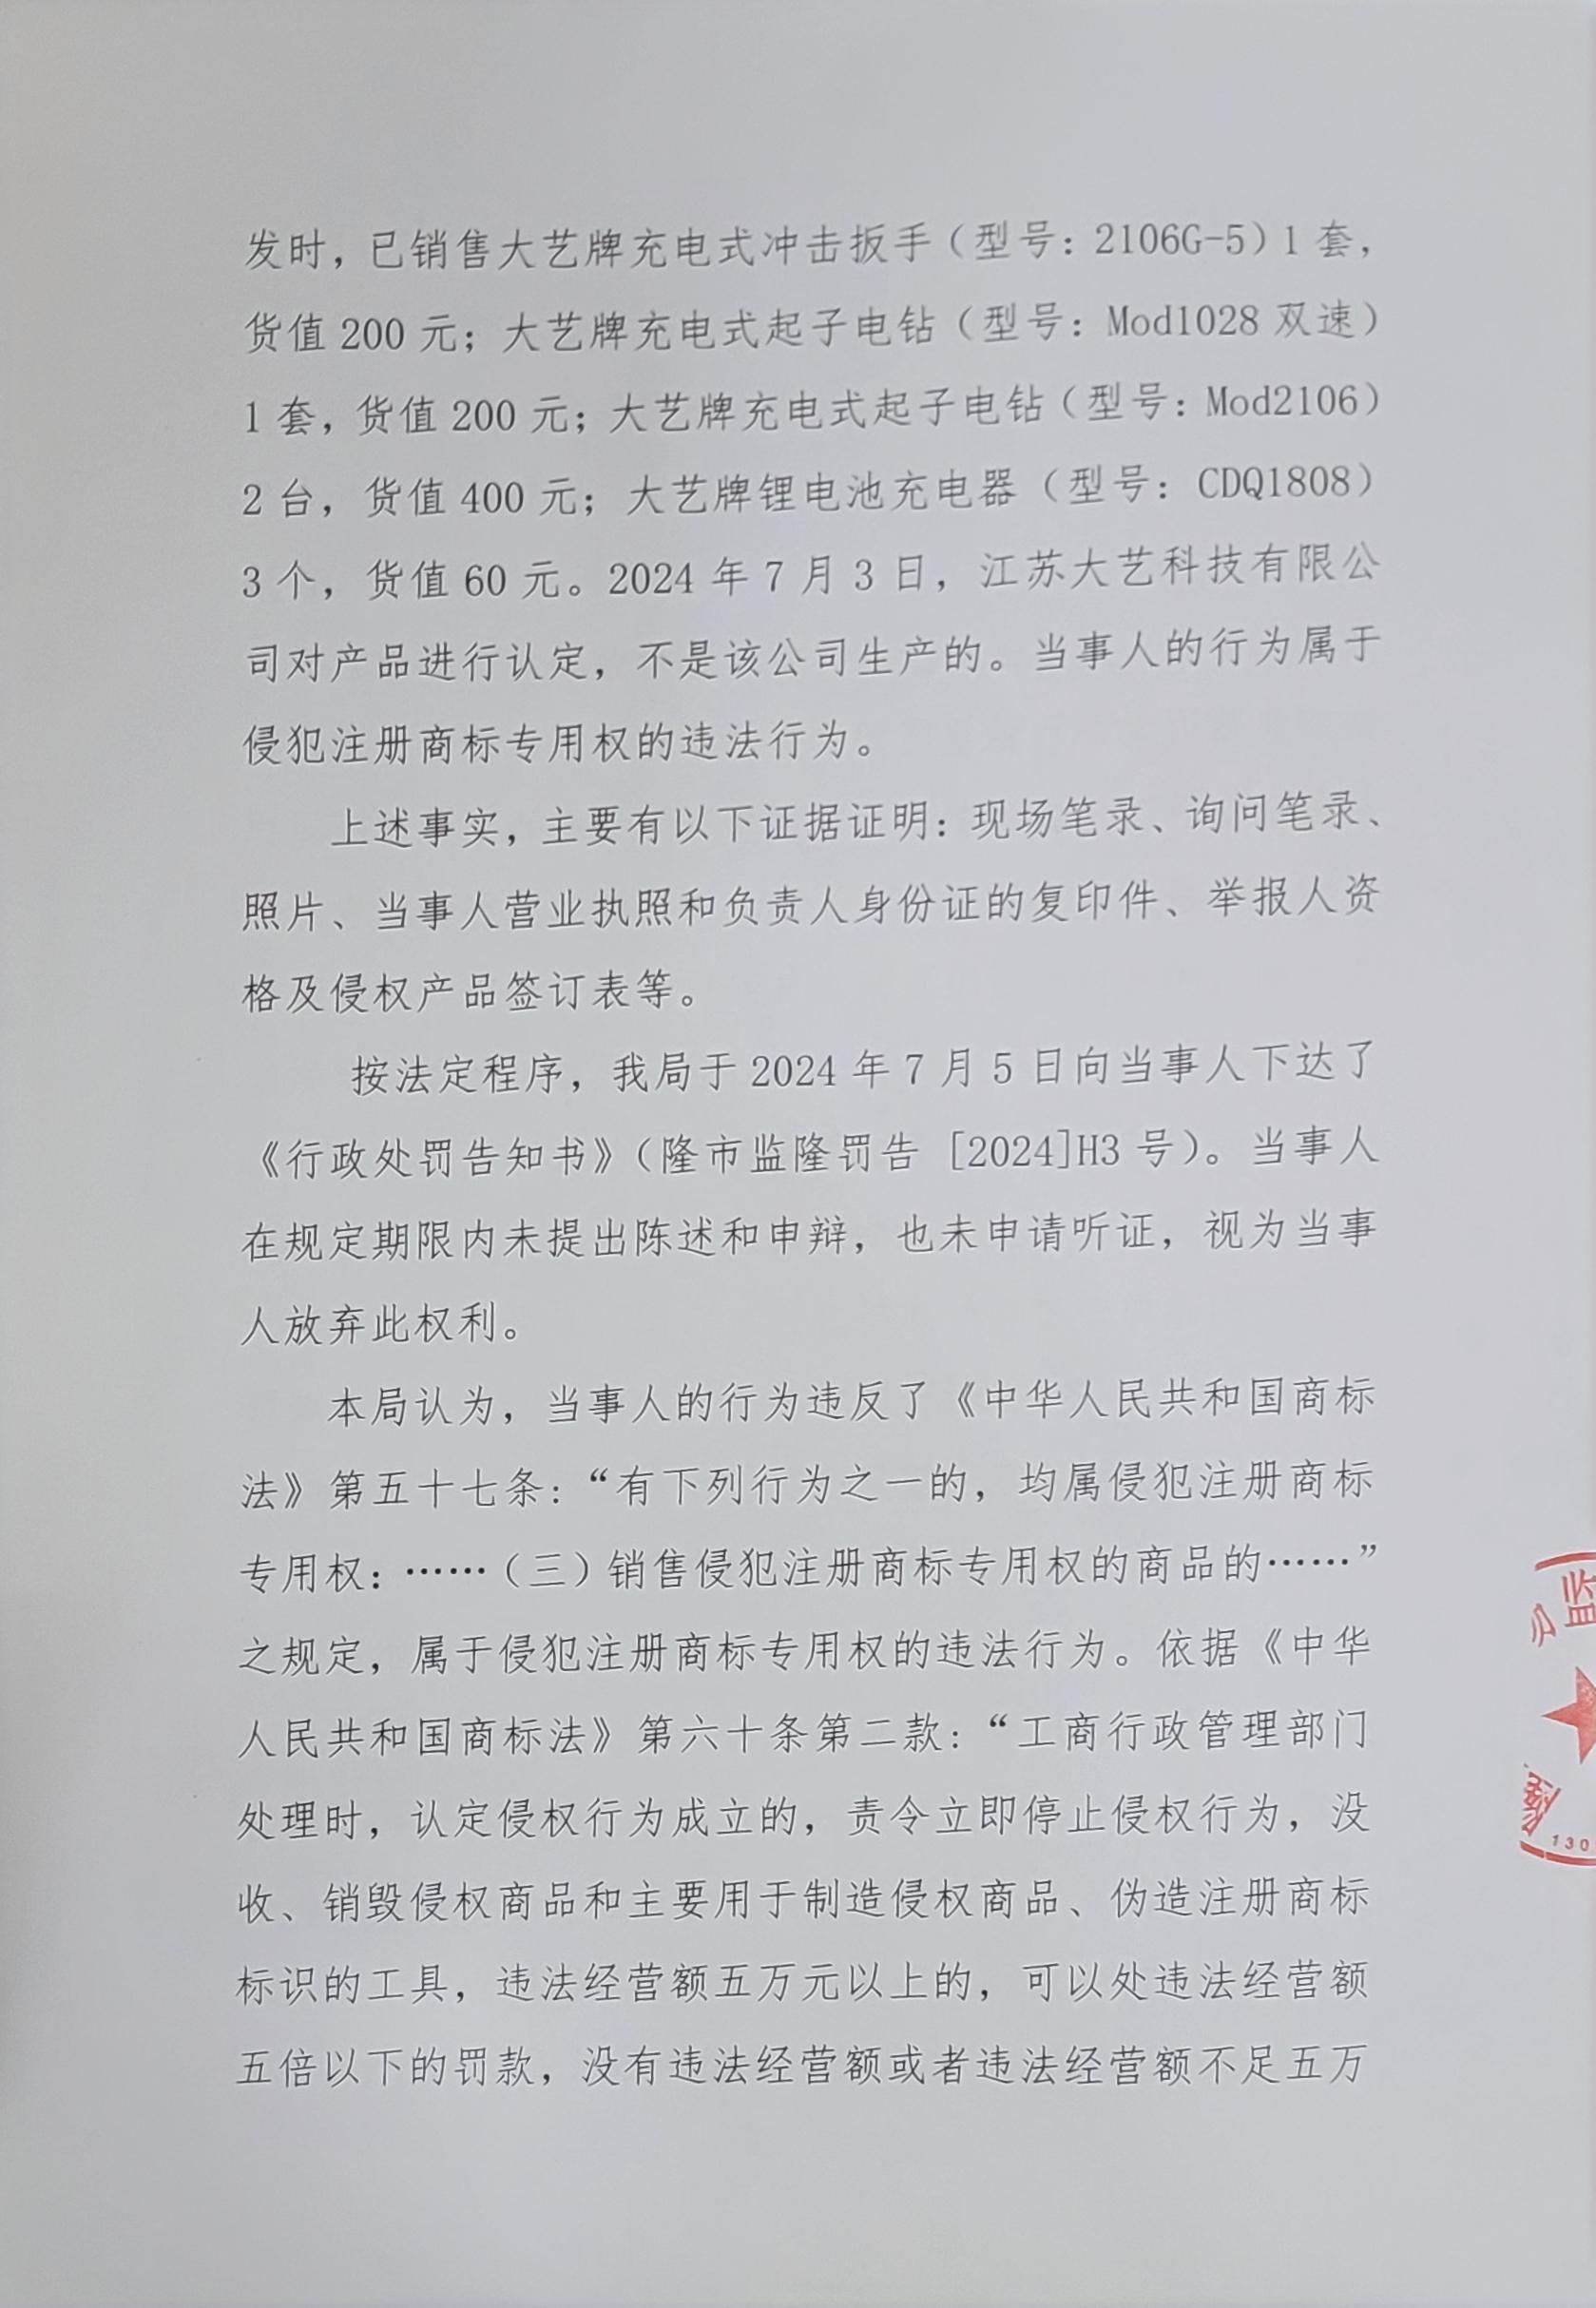 发时，已销售大艺牌充电式冲击扳手（型号：2106G-5）1 套，
货值 200 元；大艺牌充电式起子电钻（型号：Mod1028 双速）
1 套，货值 200 元；大艺牌充电式起子电钻（型号：Mod2106）
2 台，货值 400 元；大艺牌锂电池充电器（型号：CDQ1808）
3 个，货值 60 元。2024 年 7 月 3 日，江苏大艺科技有限公
司对产品进行认定，不是该公司生产的。当事人的行为属于
侵犯注册商标专用权的违法行为。
上述事实，主要有以下证据证明：现场笔录、询问笔录、
照片、当事人营业执照和负责人身份证的复印件、举报人资
格及侵权产品签订表等。
按法定程序，我局于 2024 年 7 月 5 日向当事人下达了
《行政处罚告知书》（隆市监隆罚告 [2024]H3 号）。当事人
在规定期限内未提出陈述和申辩，也未申请听证，视为当事
人放弃此权利。
本局认为，当事人的行为违反了《中华人民共和国商标
法》第五十七条：“有下列行为之一的，均属侵犯注册商标
专用权：……（三）销售侵犯注册商标专用权的商品的……”
之规定，属于侵犯注册商标专用权的违法行为。依据《中华
人民共和国商标法》第六十条第二款：“工商行政管理部门
处理时，认定侵权行为成立的，责令立即停止侵权行为，没
收、销毁侵权商品和主要用于制造侵权商品、伪造注册商标
标识的工具，违法经营额五万元以上的，可以处违法经营额
五倍以下的罚款，没有违法经营额或者违法经营额不足五万
监
130